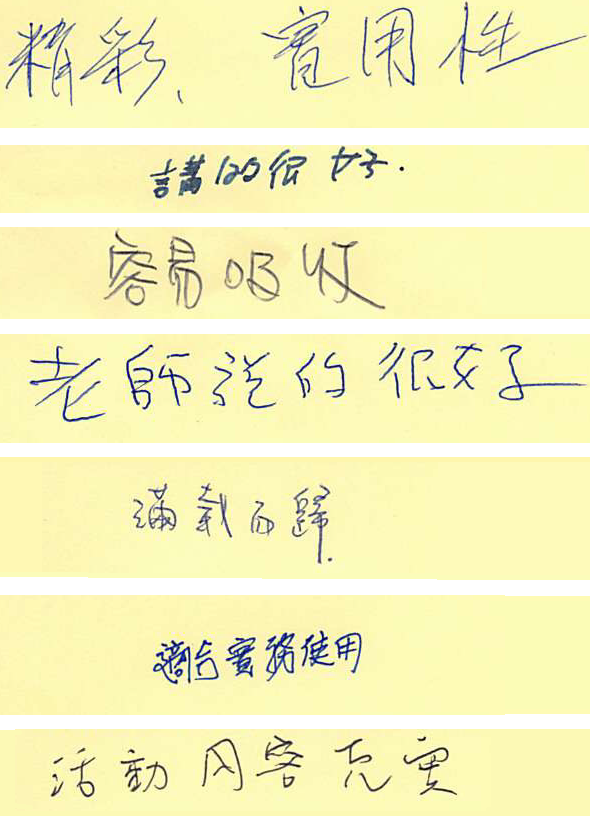 精彩、實用性
講的很好.
容易吸收
老師說的很好
滿載而歸.
適合實務使用
活動內容充實